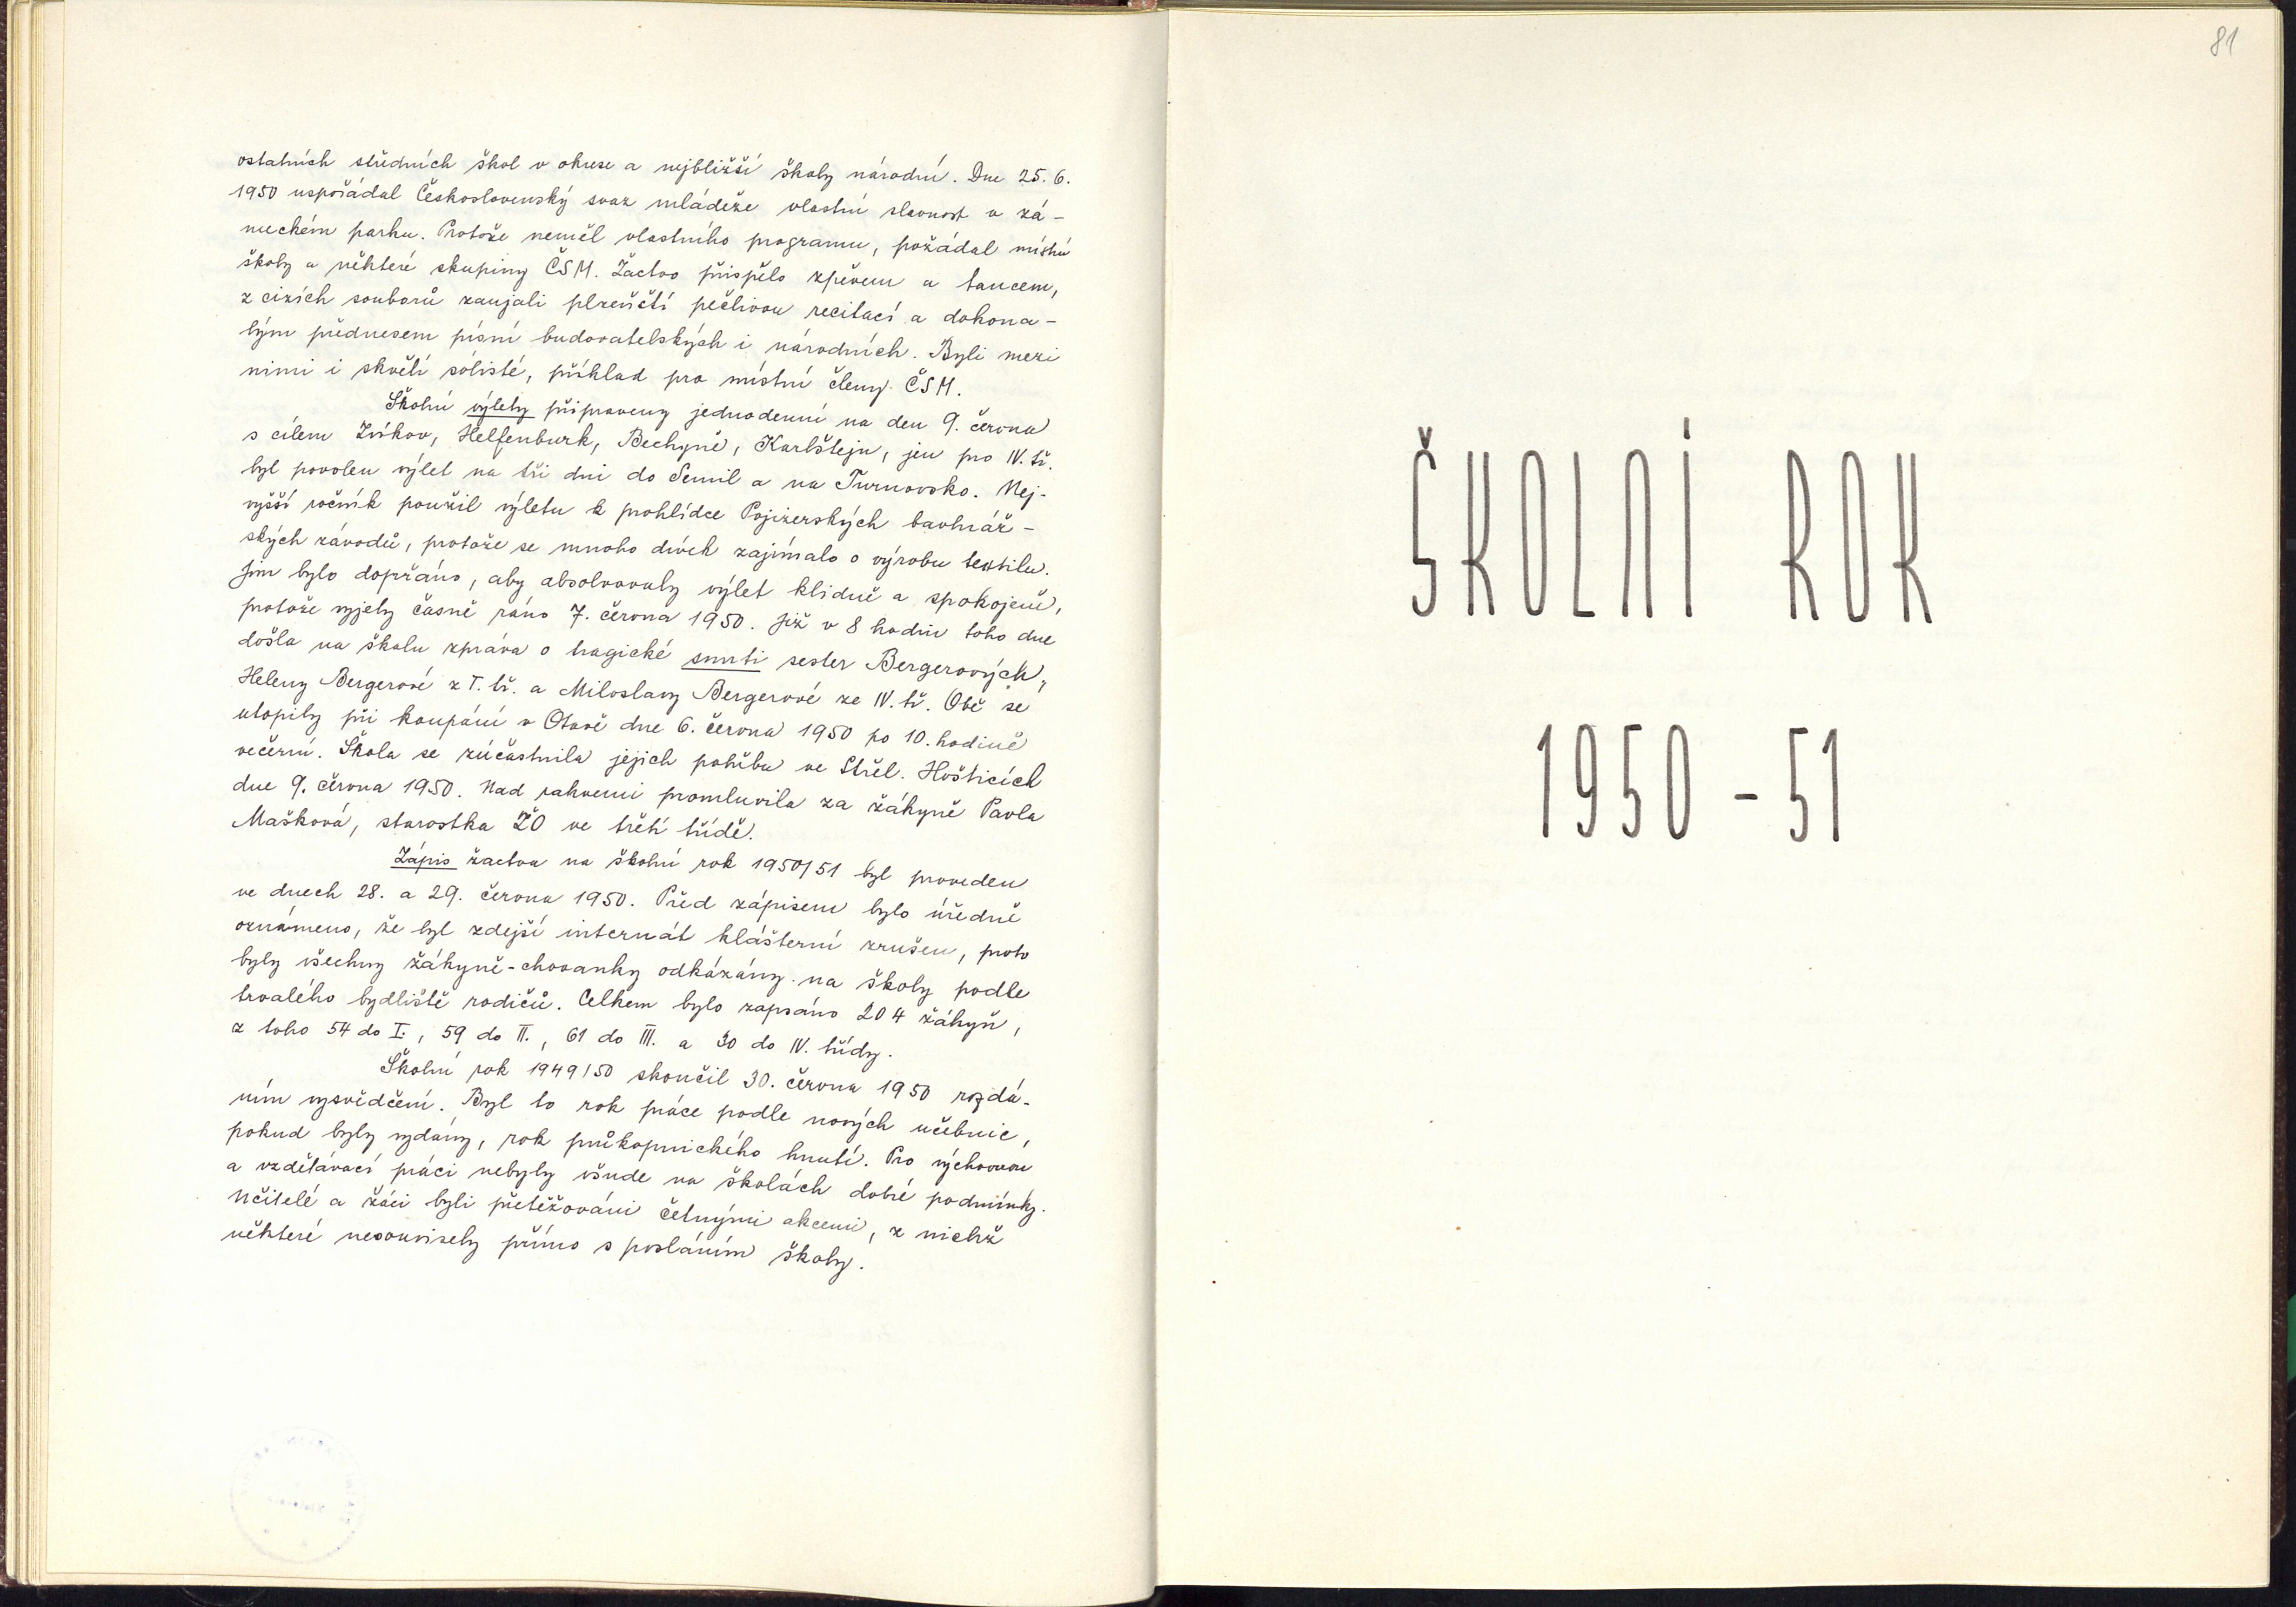 ostatních středních škol v okrese a nejbližší školy národní. Dne 25. 6.
1950 uspořádal Československý svaz mládeže vlastní slavnost v zá-
meckém parku. Protože neměl vlastního programu, požádal místní
školy a některé skupiny ČSM. Žactvo přispělo zpěvem a tancem,
z cizích souborů zaujali plzeňští pečlivou recitací a dokona-
lým přednesem písní budovatelských i národních. Byli mezi
nimi i skvělí sólisté, příklad pro místní členy ČSM.
Školní výlety připraveny jednodenní na den 9. června
s cílem Zvíkov, Helfenburk, Bechyně, Karlštejn, jen pro IV. tř.
byl povolen výlet na tři dni do Semil a na Turnovsko. Nej-
vyšší ročník použil výletu k prohlídce Pojizerských bavlnář-
ských závodů, protože se mnoho dívek zajímalo o výrobu textilu.
Jim bylo dopřáno, aby absolvovaly výlet klidně a spokojeně,
protože vyjely časně ráno 7. června 1950. Již v 8 hodin toho dne
došla na školu zpráva o tragické smrti sester Bergerových,
Heleny Bergerové z I. tř. a Miloslavy Bergerové ze IV. tř. Obě se
utopily při koupání v Otavě dne 6. června 1950 po 10. hodině
večerní. Škola se zúčastnila jejich pohřbu ve Střel. Hošticích
dne 9. června 1950. Nad rakvemi promluvila za žákyně Pavla
Mašková, starostka ŽO ve třetí třídě.
Zápis žactva na školní rok 1950/51 byl proveden
ve dnech 28. a 29. června 1950. Před zápisem bylo úředně
oznámeno, že byl zdejší internát klášterní zrušen, proto
byly všechny žákyně-chovanky odkázány na školy podle
trvalého bydliště rodičů. Celkem bylo zapsáno 204 žákyň,
z toho 54 do I., 59 do II., 61 do III. a 30 do IV. třídy.
Školní rok 1949/50 skončil 30. června 1950 rozdá-
ním vysvědčení. Byl to rok práce podle nových učebnic,
pokud byly vydány, rok průkopnického hnutí. Pro výchovnou
a vzdělávací práci nebyly všude na školách dobré podmínky.
Učitelé a žáci byli přetěžováni četnými akcemi, z nichž
některé nesouvisely přímo s posláním školy.
81
ŠKOLNÍ ROK
1950 - 51